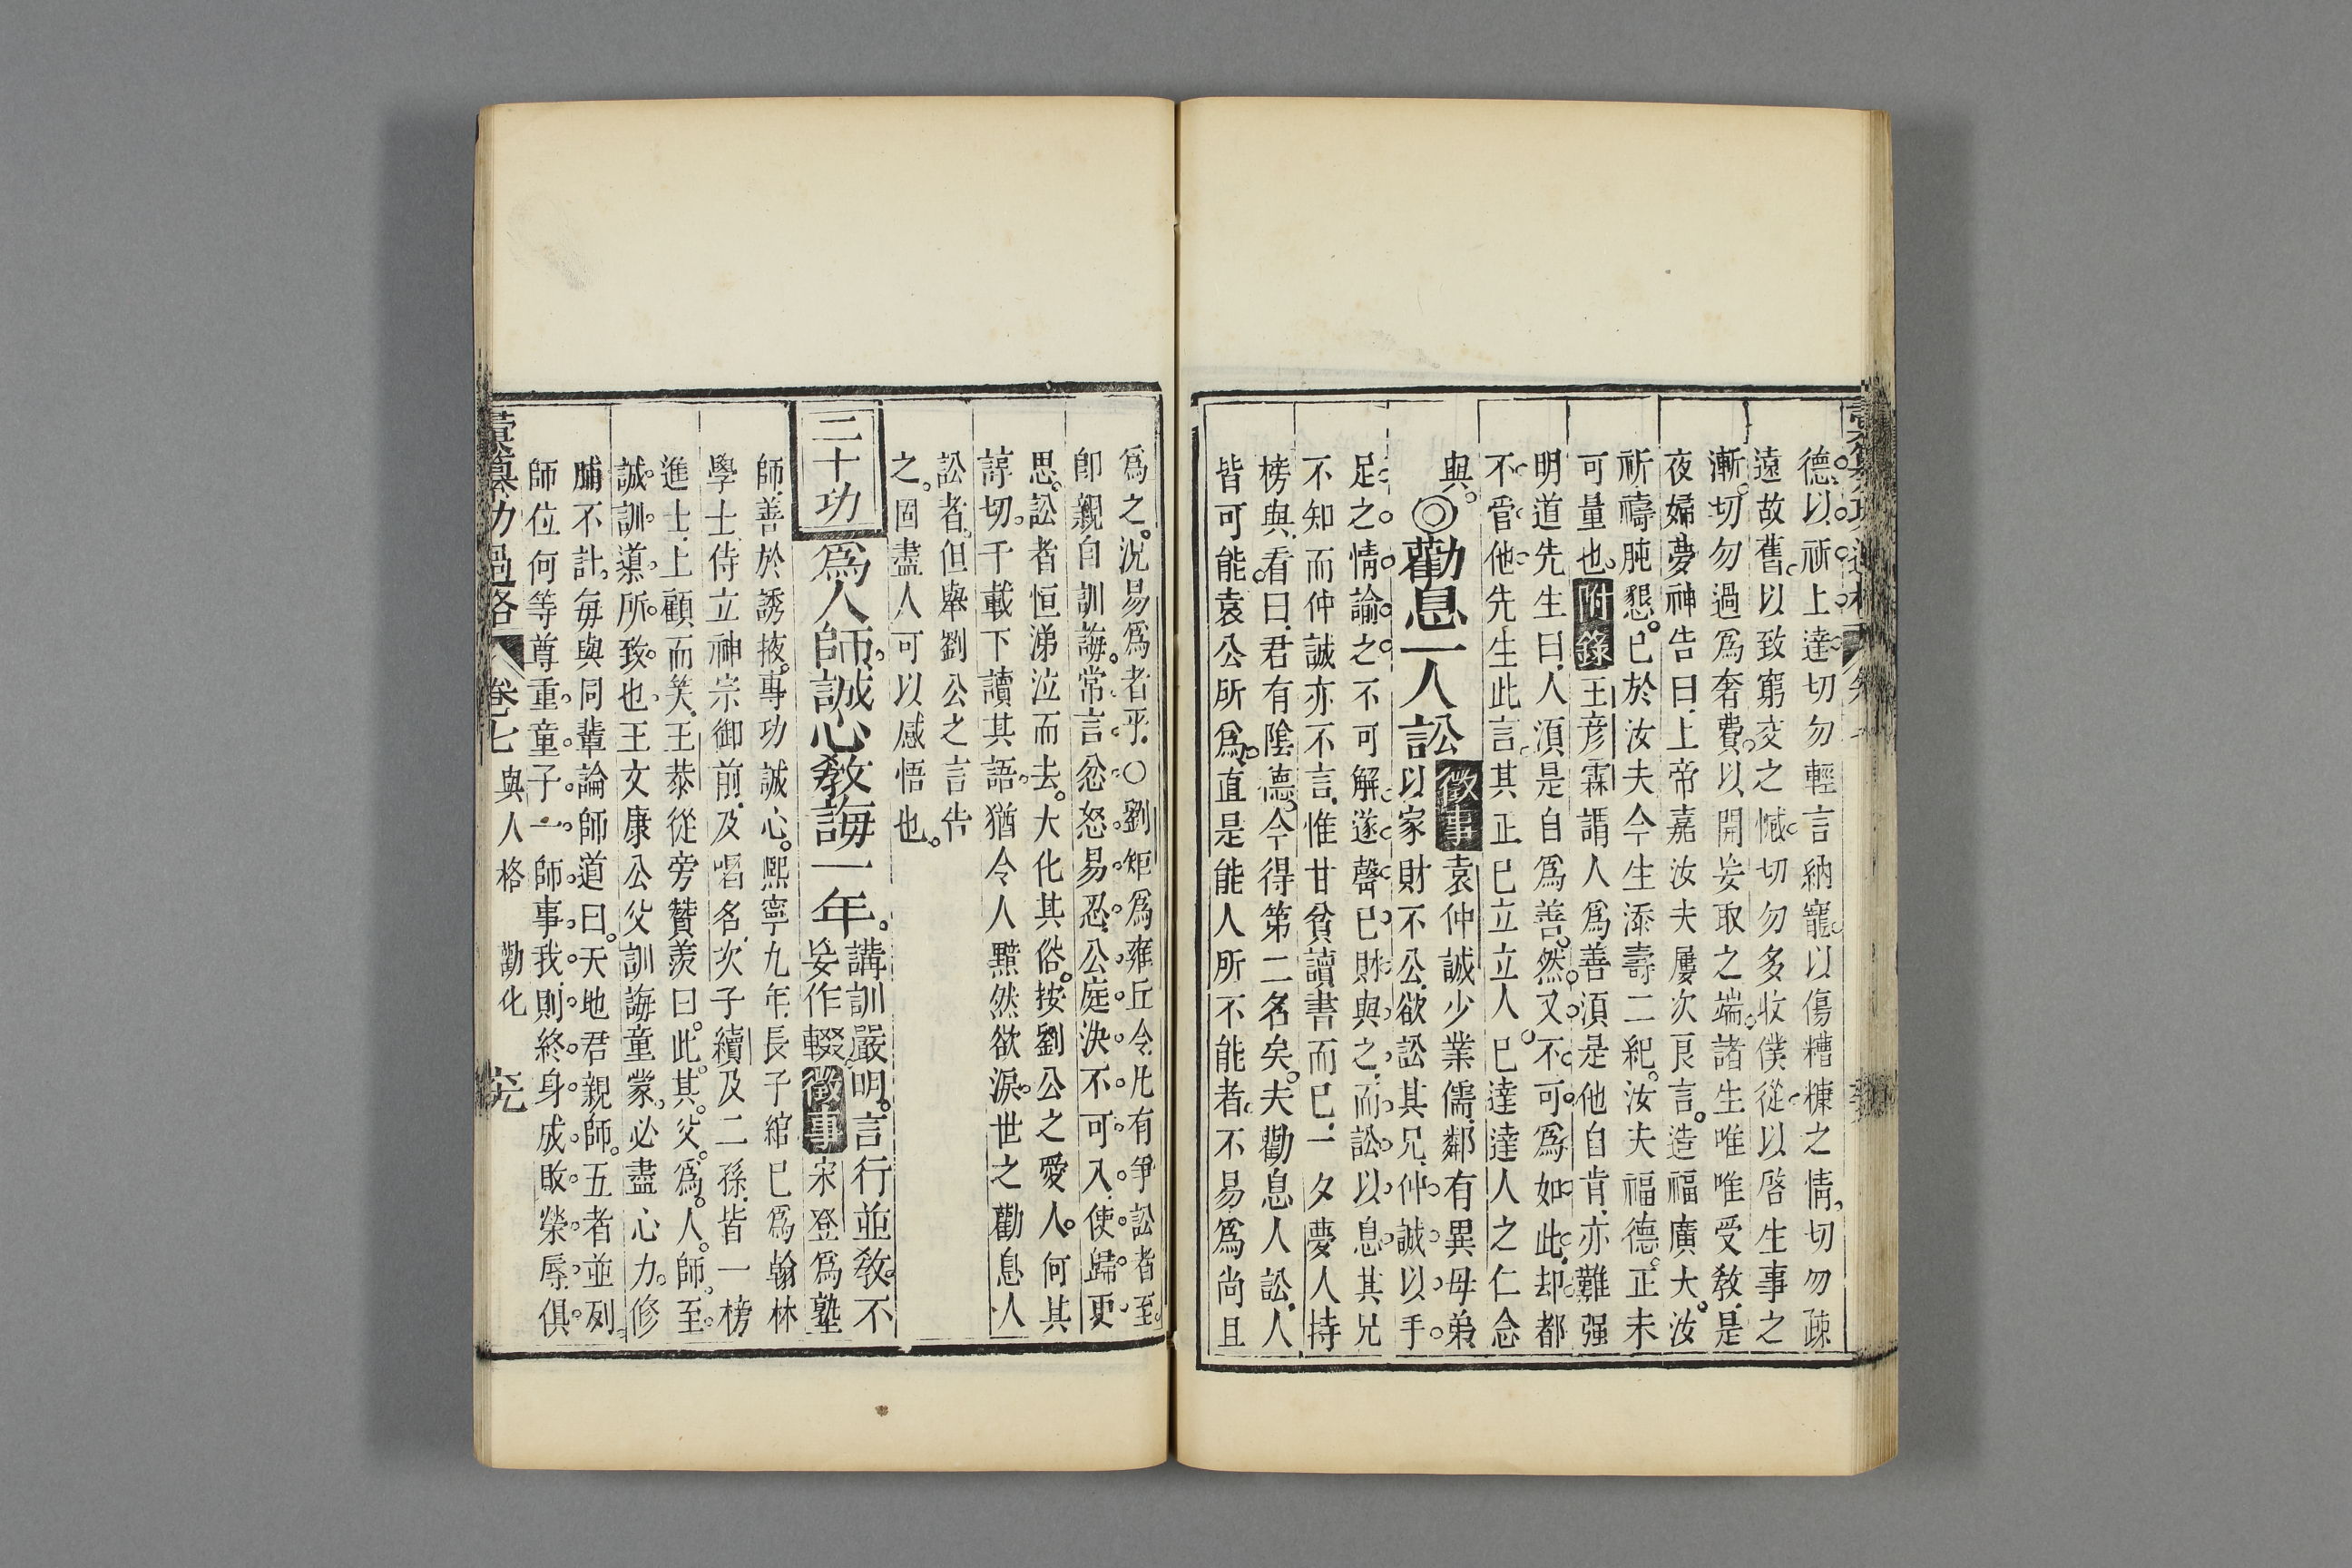 德以祈上達切勿輕言納寵以傷糟糠之情切勿疎
遠故舊以致窮交之憾切勿多收僕從以啓生事之
漸切勿過爲奢費以開妄取之端諸生唯唯受敎是
夜婦夢神告曰上帝嘉汝夫屢次良言造福廣大汝
祈禱肫懇已於汝夫今生添壽二紀汝夫福德正未
可量也附錄王彦霖謂人爲善須是他自肯亦難强
明道先生曰人須是自爲善然又不可爲如此却都
不管他先生此言其正已立立人已達達人之仁念
與
◎勸息一人訟徵事袁仲誠少業儒鄰有異母弟
以家財不公欲訟其兄仲誠以手
足之情諭之不可解遂罄已財與之而訟以息其兄
不知而仲誠亦不言惟甘貧讀書而已一夕夢人持
榜與看曰君有陰德今得第二名矣夫勸息人訟人
皆可能袁公所爲直是能人所不能者不易爲尚且
爲之況易爲者乎○劉矩爲雍丘令凡有爭訟者至
卽親自訓誨常言忿怒易忍公庭決不可入使歸更
思訟者恒涕泣而去大化其俗按劉公之愛人何其
諄切千載下讀其語猶令人黯然欲淚世之勸息人
訟者但舉劉公之言告
之固盡人可以感悟也
三十功
爲人師誠心敎誨一年講訓嚴明言行並敎不
妄作輟徵事宋登爲塾
師善於誘掖專功誠心熙寧九年長子綰已爲翰林
學士侍立神宗御前及唱名次子續及二孫皆一榜
進士上顧而笑王恭從旁贊羨曰此其父爲人師至
誠訓導所致也王文康公父訓誨童蒙必盡心力修
脯不計每與同輩論師道曰天地君親師五者並列
師位何等尊重童子一師事我則終身成敗榮辱俱
彙纂功過格 卷七 與人格 勸化